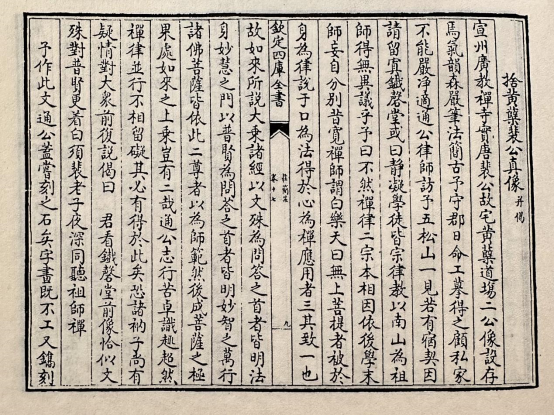 捨黃蘗裴公真像 并偈
宣州廣教禪寺實唐裴公故宅黃蘗道場二公像設存
焉氣韻森嚴筆法簡古予守郡日命工摹得之顧私家
不能嚴淨適通公律師訪予五松山一見若有宿契因
請留寘鐵磬堂或曰靜凝學徒皆宗律教以南山為祖
師得無異議乎予曰不然禪律二宗本相因依後學末
師妄自分別昔寛禪師謂白樂天曰無上菩提者被於
身為律說于口為法得於心為禪應用者三其致一也
欽定四庫全書
卷十七
九
故如來所說大乗諸經以文殊為問答之首者皆明法
身妙慧之門以普賢為問答之首者皆明妙智之萬行
諸佛菩薩皆依此二尊者以為師範然後成菩薩之極
果處如來之上乗豈有二哉通公志行苦卓識趣超然
禪律並行不相留礙其必有得於此矣恐諸衲子尚有
疑情對大衆前復說偈曰 君看鐵磬堂前像恰似文
殊對普賢更着白須裴老子夜深同聽祖師禪
予作此文通公蓋嘗刻之石矣字畫既不工又鐫刻